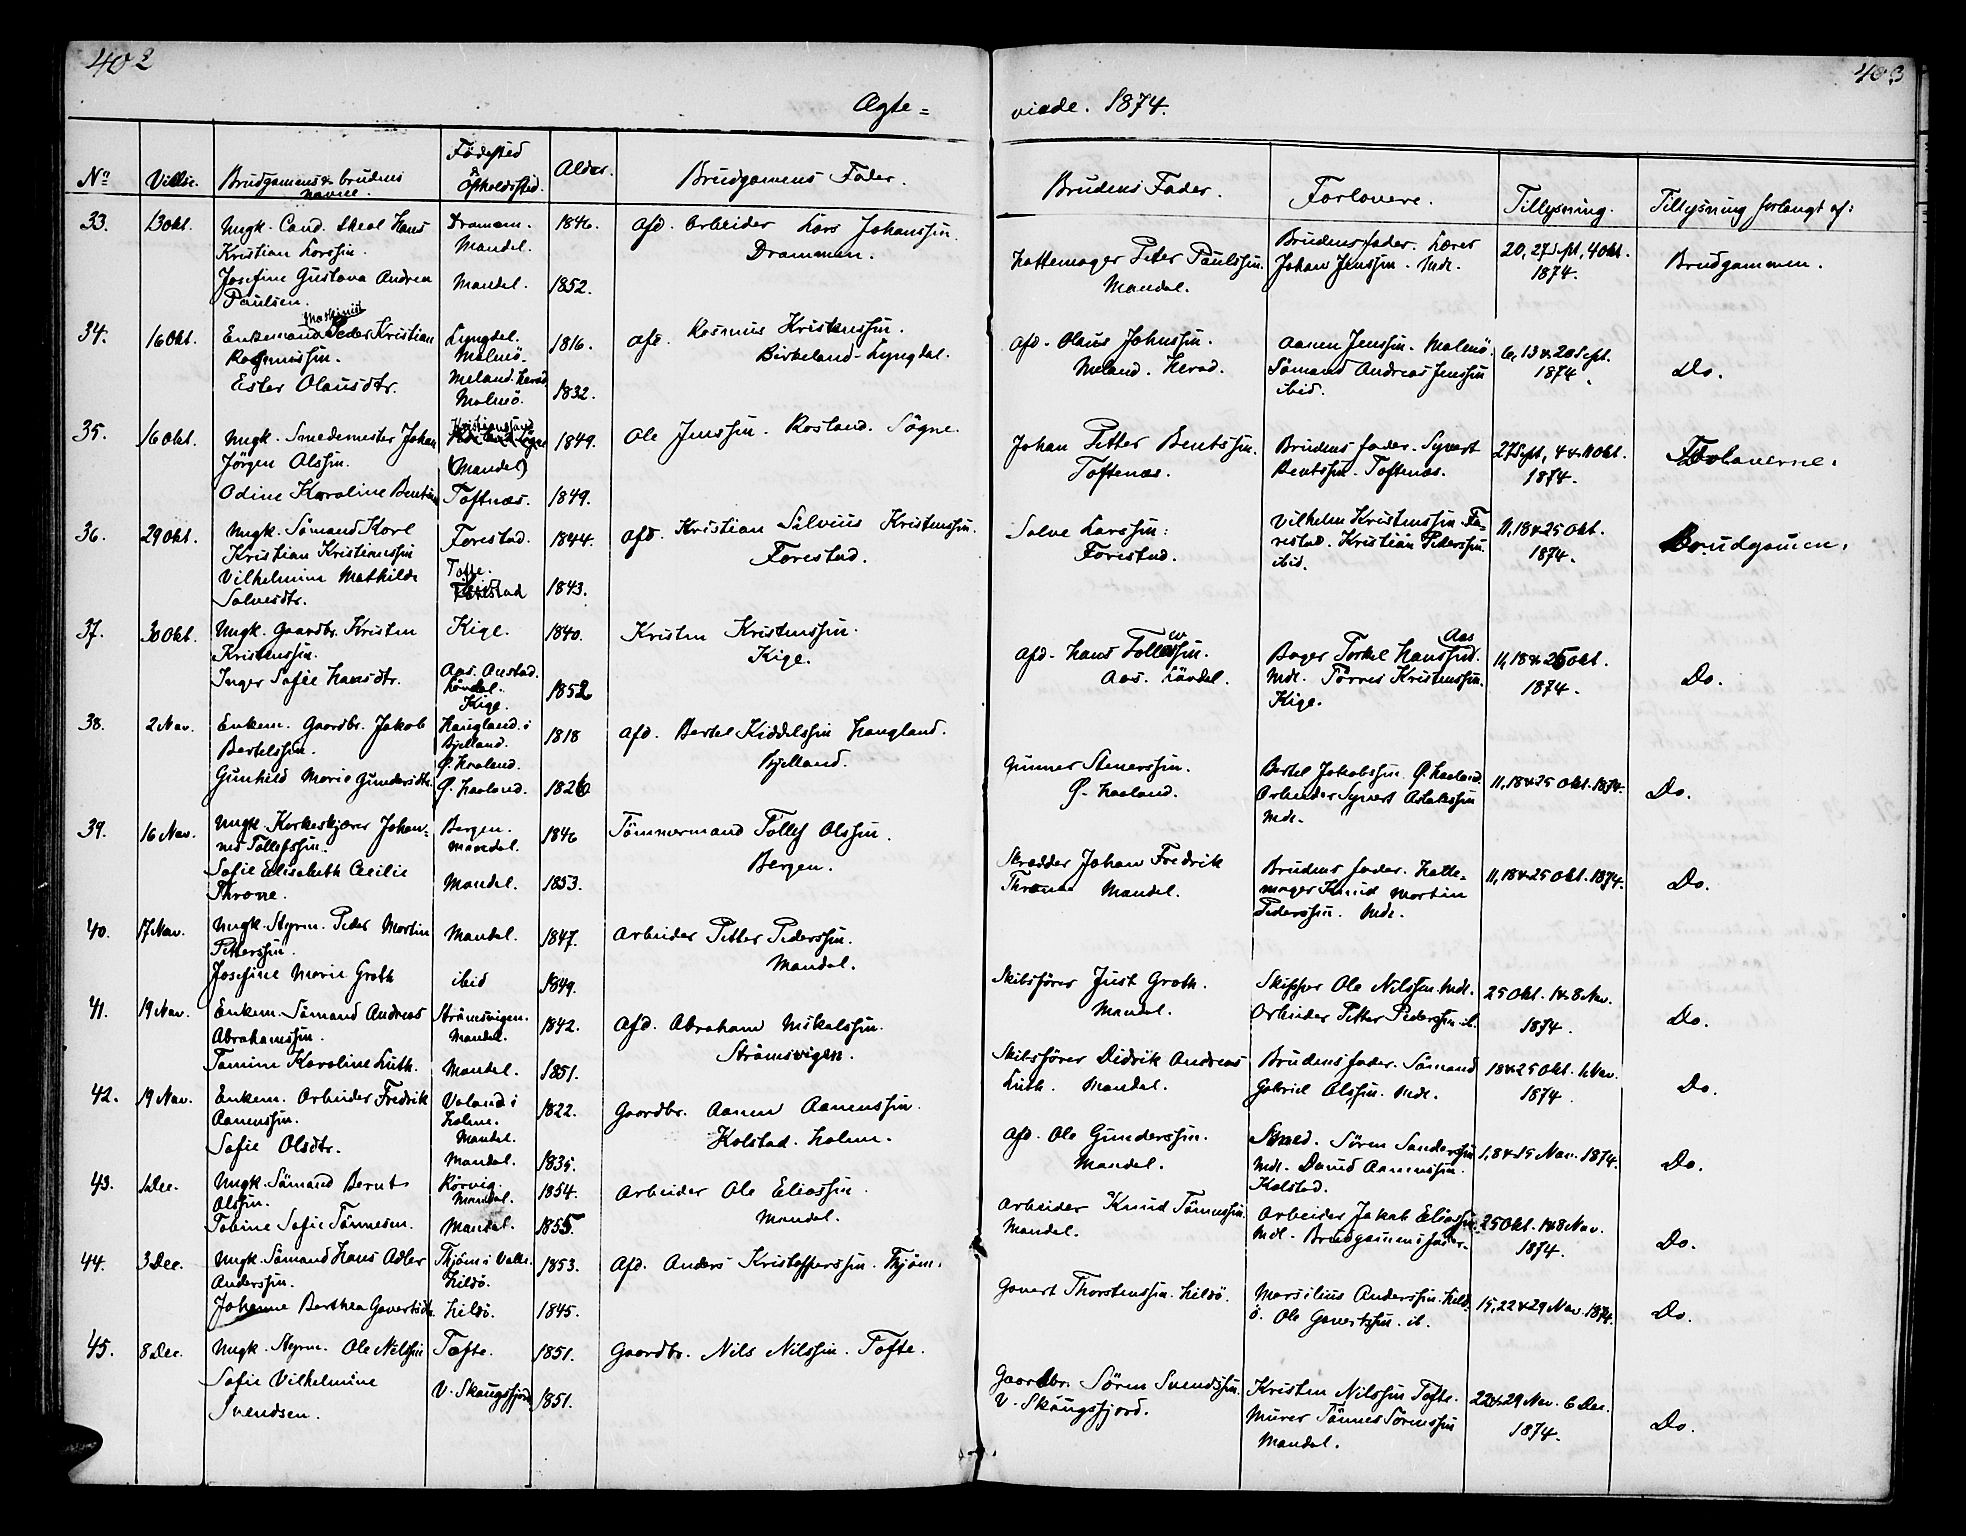 402
403
Ægte=
viede. 1874.
No
Vielse.
Brudgomens & brudens navne.
Fødested & Opholdssted.
Alder.
Brudgomens Fader.
Brudens Fader.
Forlovere.
Tillysning.
Tillysning forlangt af:
33.
13 Okt.
Ungk. Cand. theol Hans
Kristian Larssøn.
Drammen.
Mandel.
1846.
Afd. Arbeider Lars Johanssøn.
Drammen.
Josefine Gustava Andrea
Paulsen.
Mandel.
1852.
Hattemager Peter Paulssøn.
Mandal.
Brudens fader. Lærer
Johan Jenssøn. Mdl.
20, 27 Sept, 4 Okt.
1874.
Brudgommen.
34.
16 Okt.
Maskinist
Enkemand Peder Kristian
Rasmussøn.
Ester Olausdtr.
Lyngdal.
Malmö.
1816.
Meland. Herad
Malmö.
1832.
Afd. Rasmus Kristenssøn.
Birkeland. Lyngdal.
Afd. Olaus Johnssøn.
Meland. Herad.
Aanen Jenssøn. Malmö.
Sömand Andreas Jenssøn
ibid.
6, 13 & 20 Sept.
1874.
Do.
35.
16 Okt.
Ungk. Smedemester Johan
Jörgen Olssøn.
Kristianssand
(Mandal)
1849.
Odine Karoline Bentsen
Toftenæs.
1849.
Ole Jenssøn. Rosland. Sögne.
Johan Petter Bentssøn.
Toftenæs.
Brudens fader. Syvert
Bentssøn. Toftenæs.
27 Sept, 4 & 11 Okt.
1874.
Forloverne.
36.
29 Okt.
Ungk. Sömand Karl
Kristian Kristianssøn
Vilhelmine Mathilde
Salvesdtr.
Forestad.
1844.
Tofte.
1843.
Afd. Kristian Silvius Kristenssøn.
Forestad.
Salve Larssøn:
Forestad.
Vilhelm Kristenssøn Fo=
restad. Kristian Pederssøn.
ibid.
11, 18 & 25 Okt.
1874.
Brudgomen.
37.
30 Okt.
Ungk. Gaardbr. Kristen
Kristenssøn.
Inger Sofie Hansdtr.
Kige.
1840.
Aas. Austad.
Kige.
1852
Kristen Kristenssøn.
Kige.
Afd. Hans Tollevssøn.
Aas. Lövdal.
Aas
Bager Torkel Hanssøn.
Mdl. Törres Kristenssøn.
Kige.
11, 18 & 25 Okt.
1874.
Do.
38.
2 Nov.
Enkem. Gaardbr. Jakob
Bertelssøn.
Gunhild Marie Gundersdtr.
Haugland i
Bjelland.
Ø. Haaland.
1818
Ø. Haaland.
1826
Afd. Bertel Kiddelssøn Haugland.
Bjelland.
Gunner Stenerssøn.
Ø. Haaland.
Bertel Jakobssøn. Ø. Haaland.
Arbeider Syvert Aslakssøn
Mdl.
11, 18 & 25 Okt. 1874.
Do.
39.
16 Nov.
Ungk. Korkeskjærer Johan-
nes Tollefssøn.
Sofie Elisabeth Cecilie
Throne.
Bergen.
Mandal.
1846
Mandel.
1853.
Tömmermand Tollef Olssøn.
Bergen.
Skrædder Johan Fredrik
Throne Mandel.
Brudens fader. Hatte-
mager Knud Martin
Pederssøn. Mdl.
11, 18 & 25 Okt. 1874.
Do.
40.
17 Nov.
Ungk. Styrm. Peder Martin
Petterssøn.
Josefine Marie Groth
Mandel.
1847.
ibid
1849.
Arbeider Petter Pederssøn.
Mandal.
Skibsförer Just Groth.
Mandal.
Skipper Ole Nilssøn. Mdl.
Arbeider Petter Pederssøn ib.
25 Okt. 1 & 8 Nov.
1874.
Do.
41.
19 Nov.
Enkem. Sömand Andreas
Abrahamssøn.
Tomine Karoline Luth.
Strömsvigen.
Mandal.
1842.
Mandel.
1851.
Afd. Abraham Mikalssøn.
Strömsvigen.
Skibsförer Didrik Andreas
Luth. Mandal.
Brudens fader. Sömand
Gabriel Olssøn. Mdl.
18 & 25 Okt. 1 Nov.
1874.
Do.
42.
19 Nov.
Enkem. Arbeider Fredrik
Aanenssøn.
Sofie Olsdtr.
Valand i
Holme.
Mandal.
1822.
Mandal.
1835.
Gaardbr. Aanen Aanenssøn.
Kolstad. Holme.
Afd. Ole Gunderssøn.
Mandal.
Smed. Sören Sanderssøn
Mdl. David Aanenssøn.
Kolstad.
1, 8 & 15 Nov. 1874.
Do.
43.
1 Dec.
Ungk. Sömand Bernt
Olssøn.
Tobine Sofie Tönnesen.
Körvig.
Mandal.
1854.
Mandal.
1855
Arbeider Ole Eliassøn.
Mandal.
Arbeider Knud Tönnessøn.
Mandel.
Arbeider Jakob Eliassøn.
Mdl. Brudgomens fader.
25 Okt. 1 & 8 Nov.
1874.
Do.
44.
3 Dec.
Ungk. Sömand Hans Adler
Anderssøn.
Johanne Berthea Govertsdtr.
Thjöm i Valle.
Hildö.
1853.
Hildö.
1845.
Afd. Anders Kristofferssøn. Thjöm.
Govert Thorstenssøn. Hildö.
Marsilius Anderssøn. Hild-
ö. Ole Govertssøn. ib.
15, 22 & 29 Nov. 1874.
Do.
45.
8 Dec.
Ungk. Styrm. Ole Nilssøn
Sofie Vilhelmine
Svendsen.
Tofte.
1851.
V. Skaugsfjord
1851.
Gaardbr. Nils Nilssøn. Tofte.
Gaardbr. Sören Svendssøn.
V. Skaugsfjord.
Kristen Nilssøn Tofte.
Murer Tönnes Sörenssøn
Mandal.
22 & 29 Nov. 6 Dec.
1874.
Do.